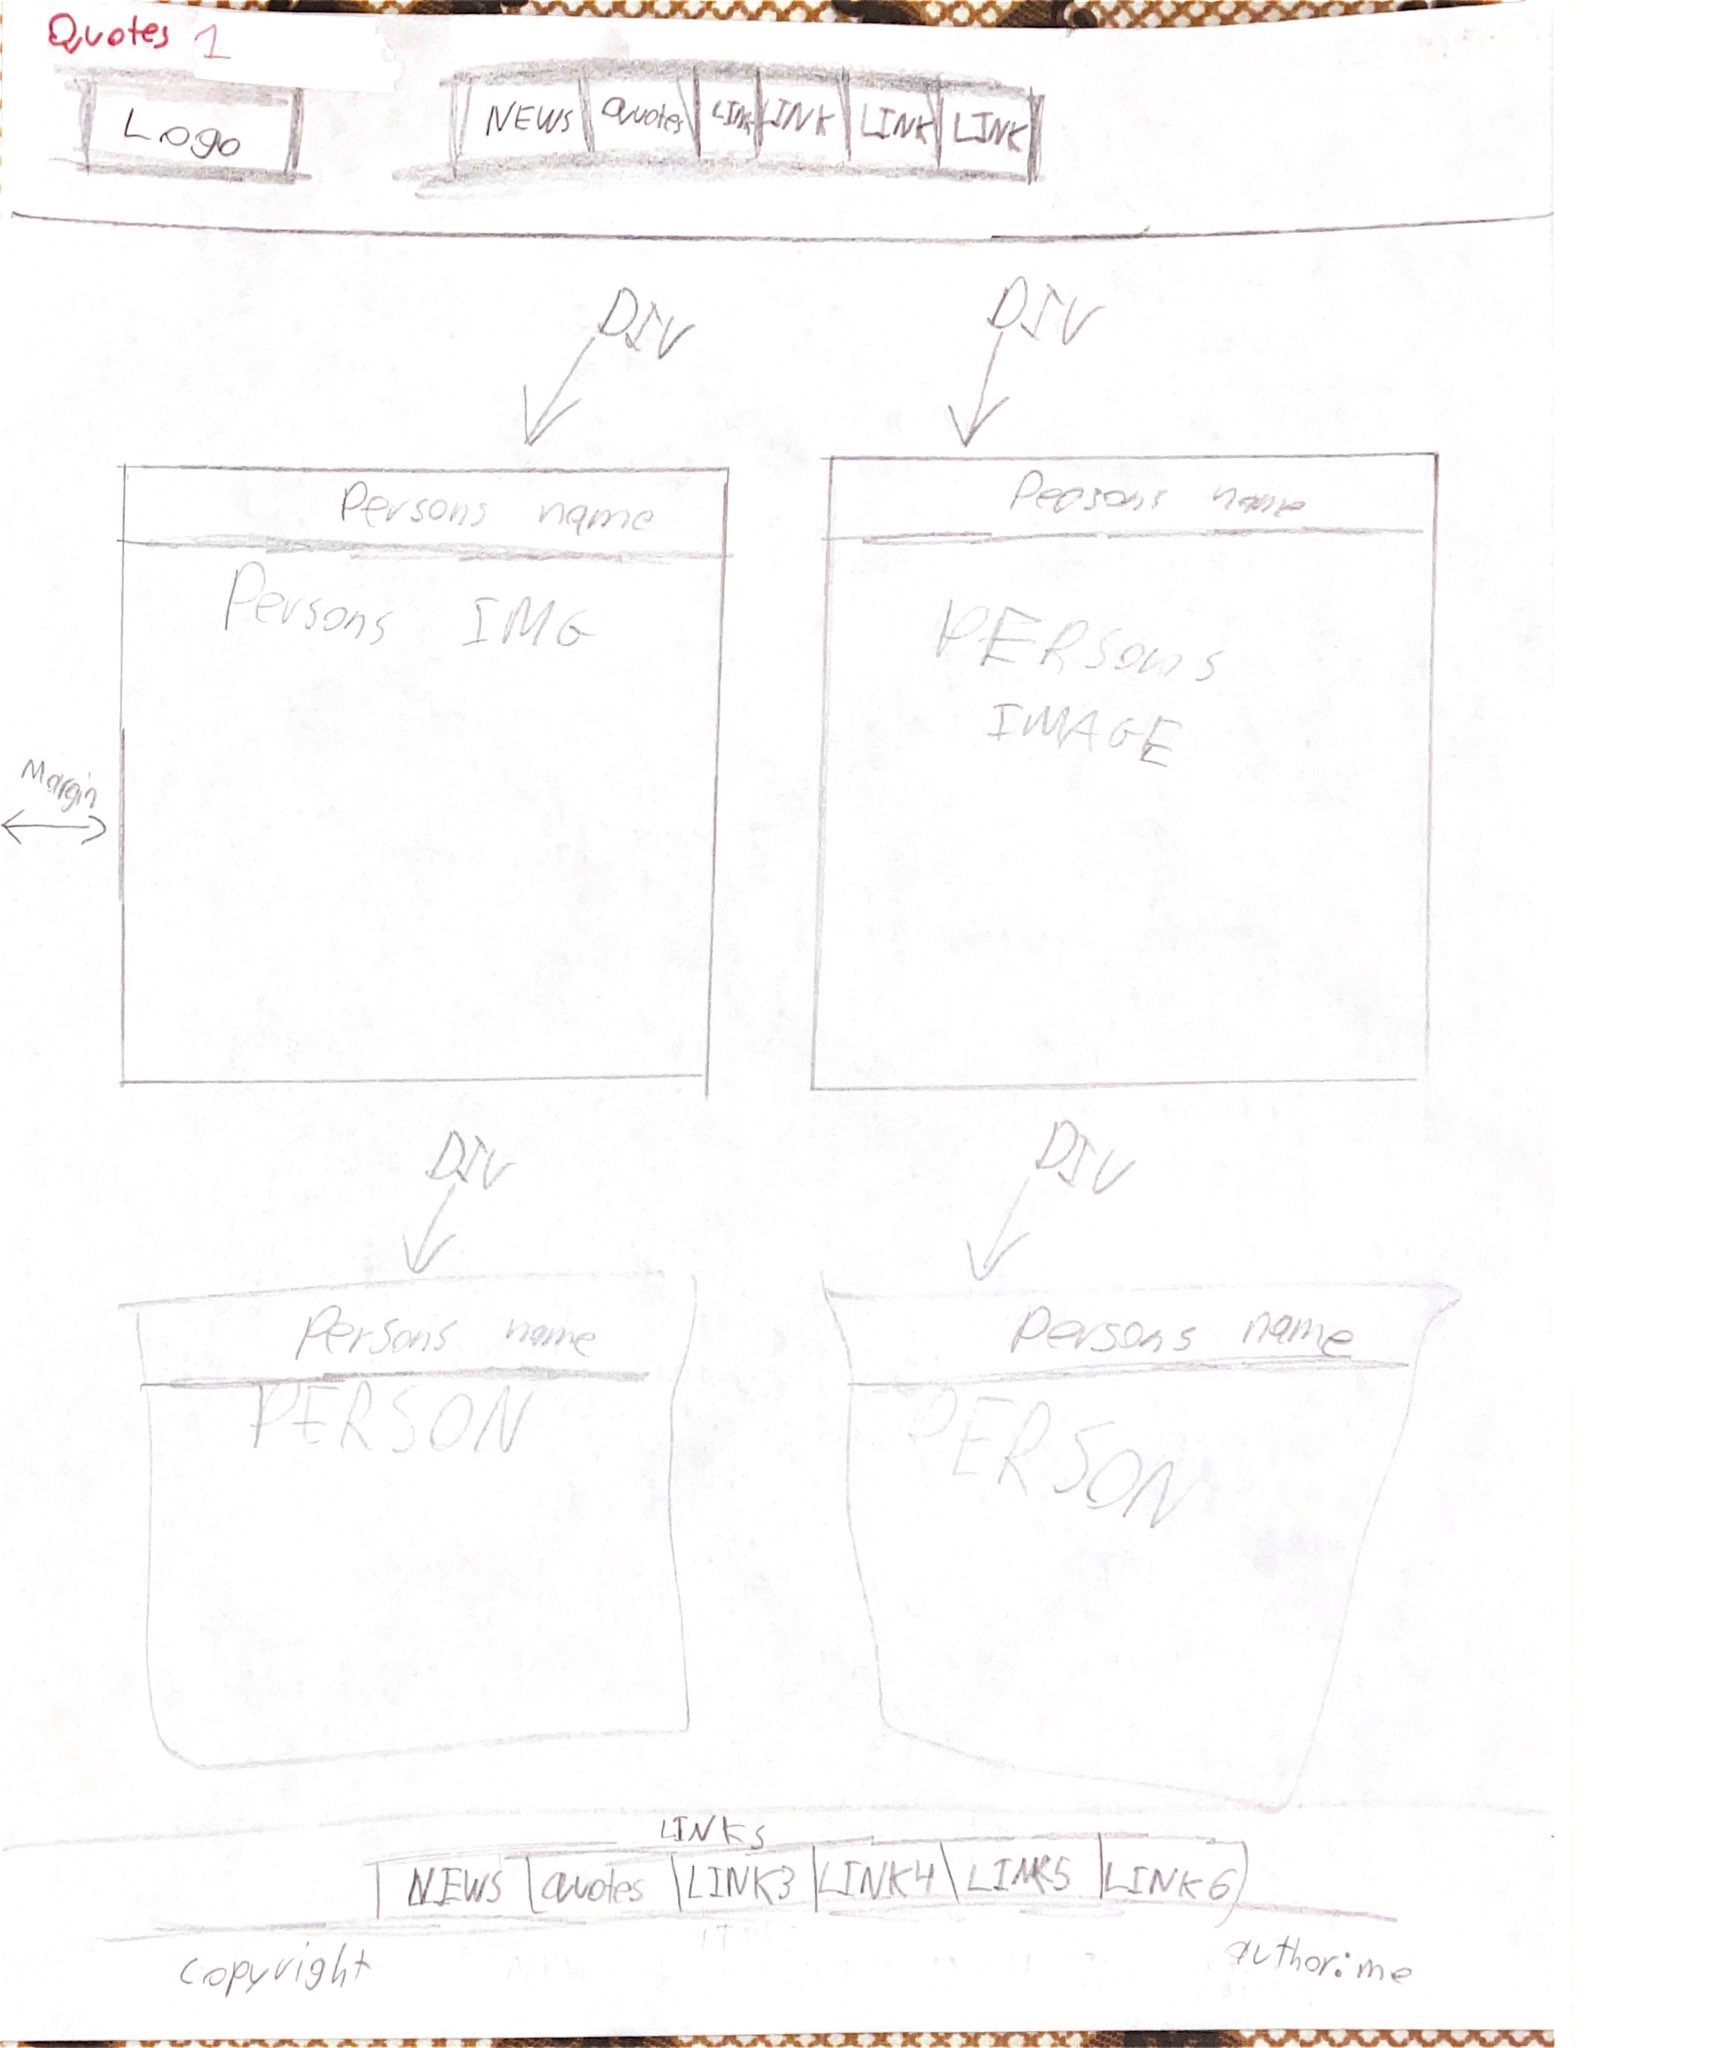 Quotes 1
Logo
NEWS Quotes LINK LINK LINK LINK
DIV DIV
Persons name Persons name
Persons IMG PERSons
IMAGE
Margin
DIV DIV
Persons name Persons name
PERSON PERSON
LINKS
NEWS Quotes LINK3 LINK4 LINK5 LINK6
copyright author:me